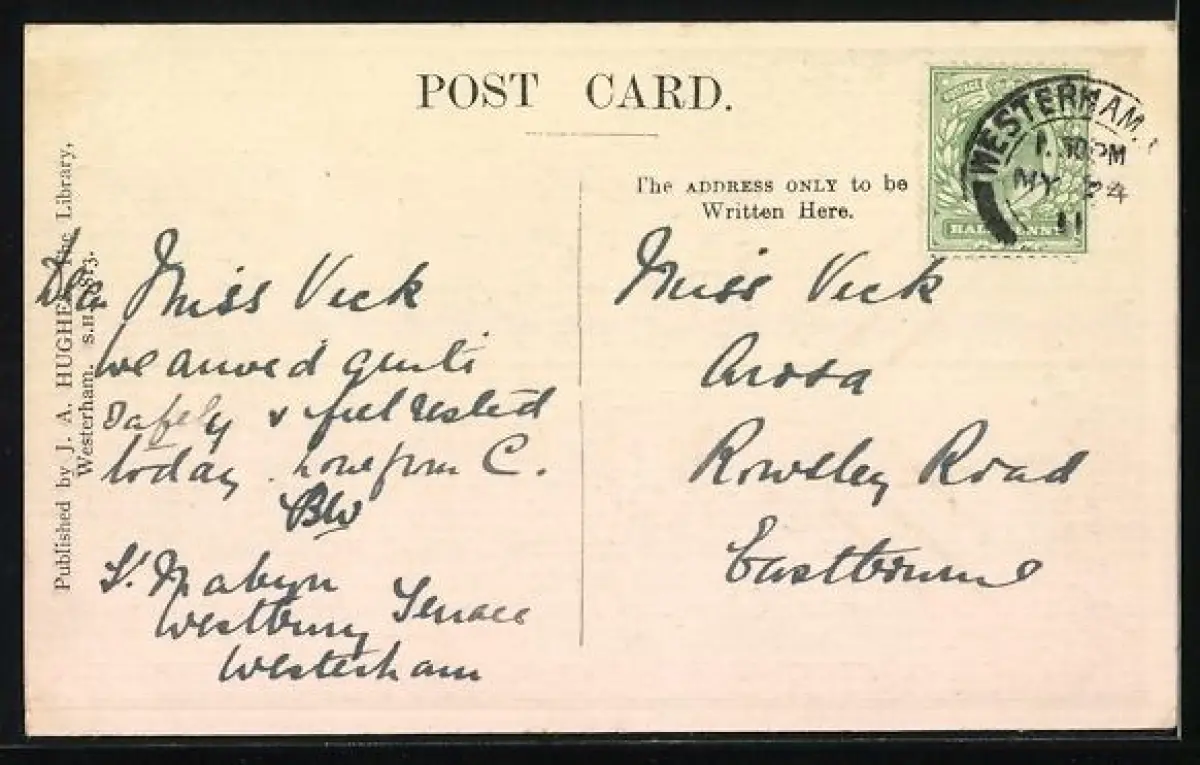 POST CARD.
The ADDRESS ONLY to be
Written Here.
WESTERHAM.
1. PM
MY 24
11
HALFPENNY
Published by J. A. HUGHES, The Library,
Westerham. S.H.
Dear Miss Vick
we arrived quite
safely & feel rested
today. Love from C.
BW
St Mabyn
Westbury Terrace
Westerham
Miss Vick
Arosa
Rowsley Road
Eastbourne